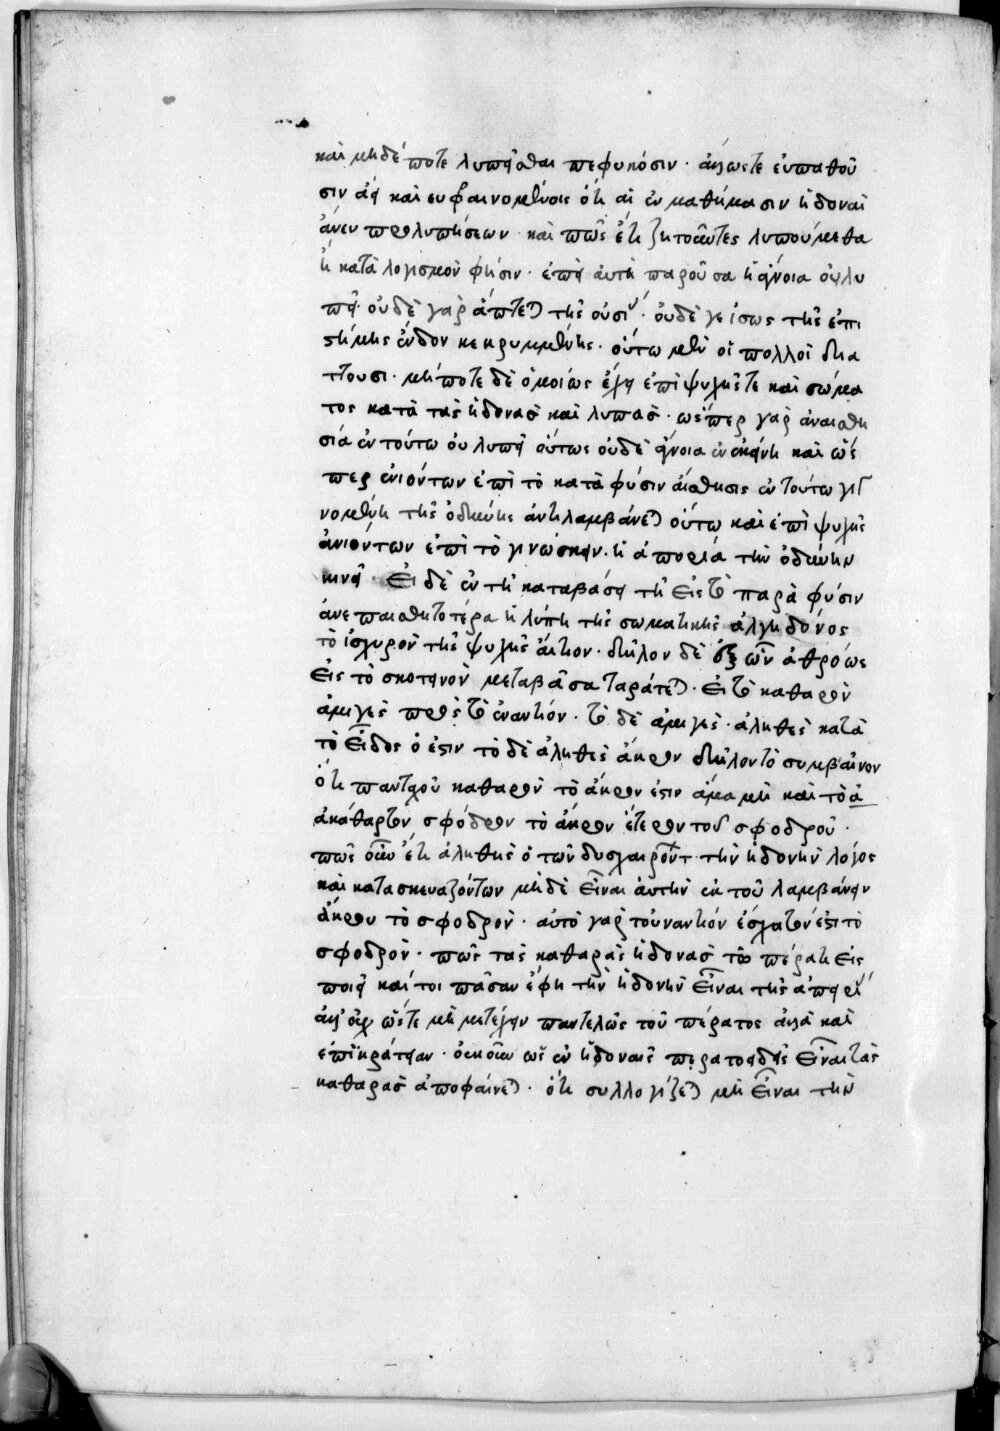 καὶ μηδέποτε λυπεῖσθαι πεφυκόσιν · ἄλλως τε εὐπαθοῦ
σιν ἀεὶ καὶ ευφραινομένοις ὅτι αἱ ἐν μαθήμασιν ἡδοναὶ
ἄνευ προλυπήσεων · καὶ πῶς ἔτι ζητοῦντες λυπούμεθα
ἢ κατὰ λογισμὸν φησιν · ἐπεὶ αὐτὴ παροῦσα ἡ ἄγνοια οὐ λυ
πεῖ · οὐδὲ γὰρ ἅπτεται τῆς οὐσίας · οὐδέ γε ἴσως τῆς ἐπι
στήμης ἔνδον κεκρυμμένης · οὕτω μὲν οἱ πολλοὶ διαι
τουσι · μήποτε δὲ ὁμοίως ἔχει ἐπὶ ψυχῆς τε καὶ σώμα
τος κατὰ τὰς ἡδονὰς καὶ λυπας · ὥσπερ γὰρ ἀναισθη
σία ἐν τούτω οὐ λυπεῖ οὕτως οὐδὲ ἄγνοια ἐν ἐκείνη καὶ ὥς
περ ἐνιόντων ἐπὶ τὸ κατὰ φύσιν αἴσθησις ἐν τούτω γι
νομένη τῆς ὀδύνης ἀντιλαμβάνεται οὕτω καὶ ἐπὶ ψυχῆς
ἀνιόντων ἐπὶ τὸ γινώσκειν · ἡ ἀπορία τὴν ὀδύνην
κινεῖ · Εἰ δὲ ἐν τῆ καταβάσει τῆ εἰς τὸ παρὰ φύσιν
ἀνεπαισθητοτέρα ἡ λύπη τῆς σωματικῆς ἀλγηδόνος
τὸ ἰσχυρὸν τῆς ψυχῆς αἴτιον · δῆλον δὲ ἐξ ὧν ἀθρόως
εἰς τὸ σκοτεινὸν μεταβᾶσα ταράτεται · Εἰ τὸ καθαρὸν
ἀμιγὲς πρὸς τὸ ἐναντίον · τὸ δὲ ἀμιγὲς · ἀληθὲς κατὰ
τὸ εἶδος ὅ ἐστιν τὸ δὲ ἀληθὲς ἄκρον δῆλον τὸ συμβαῖνον
ὅτι πανταχοῦ καθαρὸν τὸ ἄκρον ἐστιν ἅμα μὴ καὶ τὸ ἀ
ἀκάθαρτον σφόδρον τὸ ἄκρον ἕτερον τοῦ σφοδροῦ ·
πῶς οὖν ἔτι ἀληθὴς ὁ τῶν δυσχαιρόντ την ἡδονὴν λόγος
καὶ κατασκευαζόντων μηδὲ εἶναι ἀυτὴν ἐκ τοῦ λαμβάνειν
ἄκρου τὸ σφοδρὸν · αὐτὸ γὰρ τοὐναντίον ἔσχατόν ἐστι τὸ
σφοδρὸν · πῶς τὰς καθαρὰς ἡδονὰς τῶ πέρατι εἰς
ποιεῖ καίτοι πᾶσαν ἔφη τὴν ἡδονὴν εἶναι τῆς ἀπειρίας
ἀλλ' οὐχ ὥστε μὴ μετέχειν παντελῶς τοῦ πέρατος ἀλλὰ καὶ
ἐπικράτειαν · οὐκοῦν ὡς ἐν ἡδοναῖς περατοειδεῖς εἶναι τὰς
καθαρὰς ἀποφαίνεται · ὅτι συλλογίζεται μὴ εἶναι τὴν